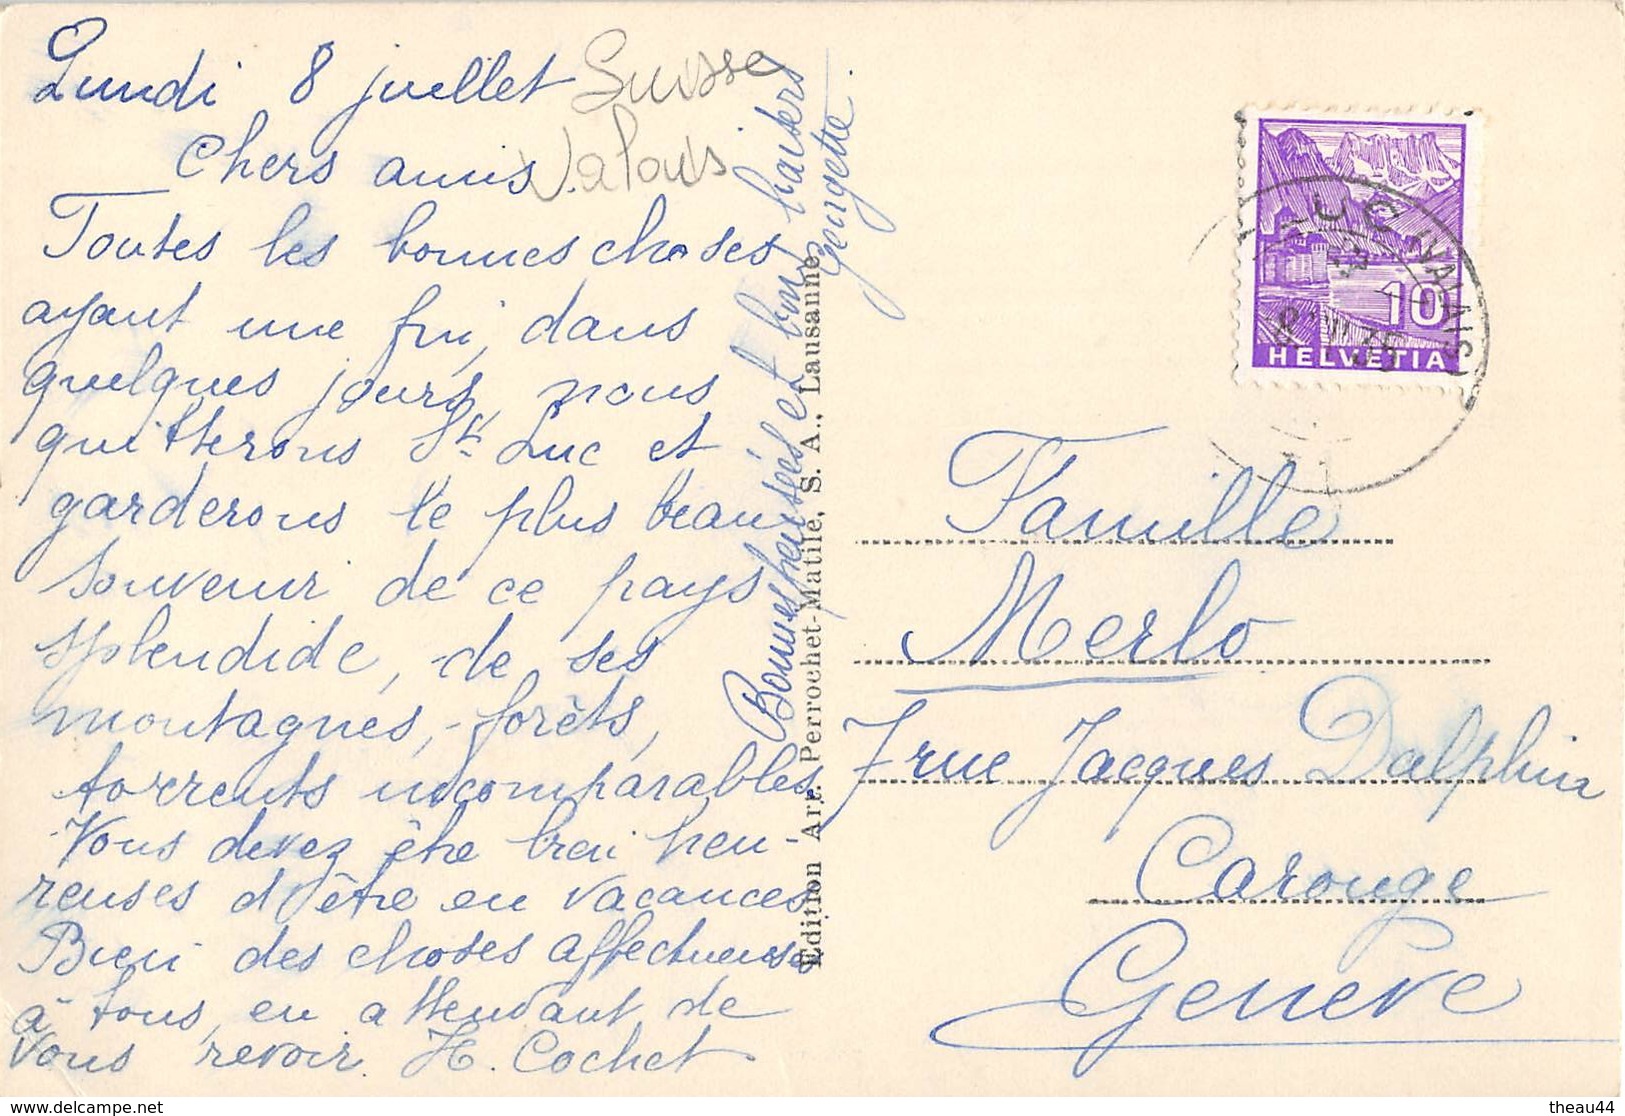 Lundi 8 juillet
Suisse
Valais
Chers amis
Toutes les bonnes choses
ayant une fin, dans
quelques jours nous
quitterons St Luc et
garderons le plus beau
souvenir de ce pays
splendide, de ses
montagnes, forêts,
torrents incomparables
Vous devez être bien heu-
reuses d'être en vacances
Bien des choses affectueuses
à tous, en attendant de
vous revoir. H. Cochet
Bonnes pensées et bons baisers
Georgette.
Edition Art. Perrochet-Matile, S. A., Lausanne
LUC (VALAIS)
10
HELVETIA
Famille
Merlo
7 rue Jacques Dalphin
Carouge
Genève
delcampe.net
theau44